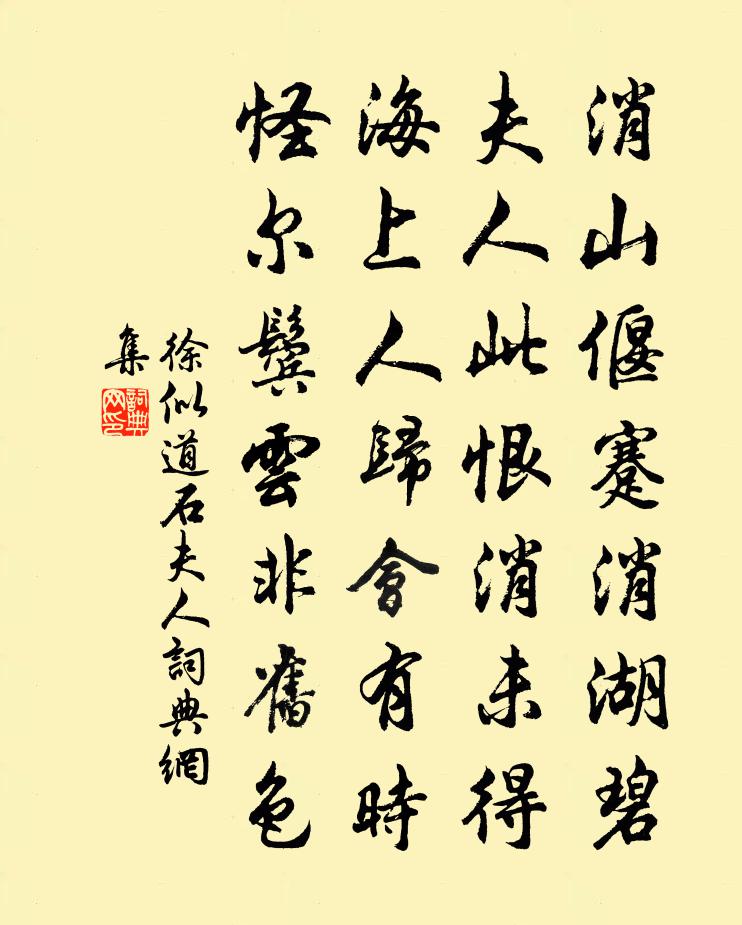 消山偃蹇消湖碧
夫人此恨消未得
海上人歸會有時
怪尔鬓雲非舊色
徐似道石夫人詞典網
集
詞典网印